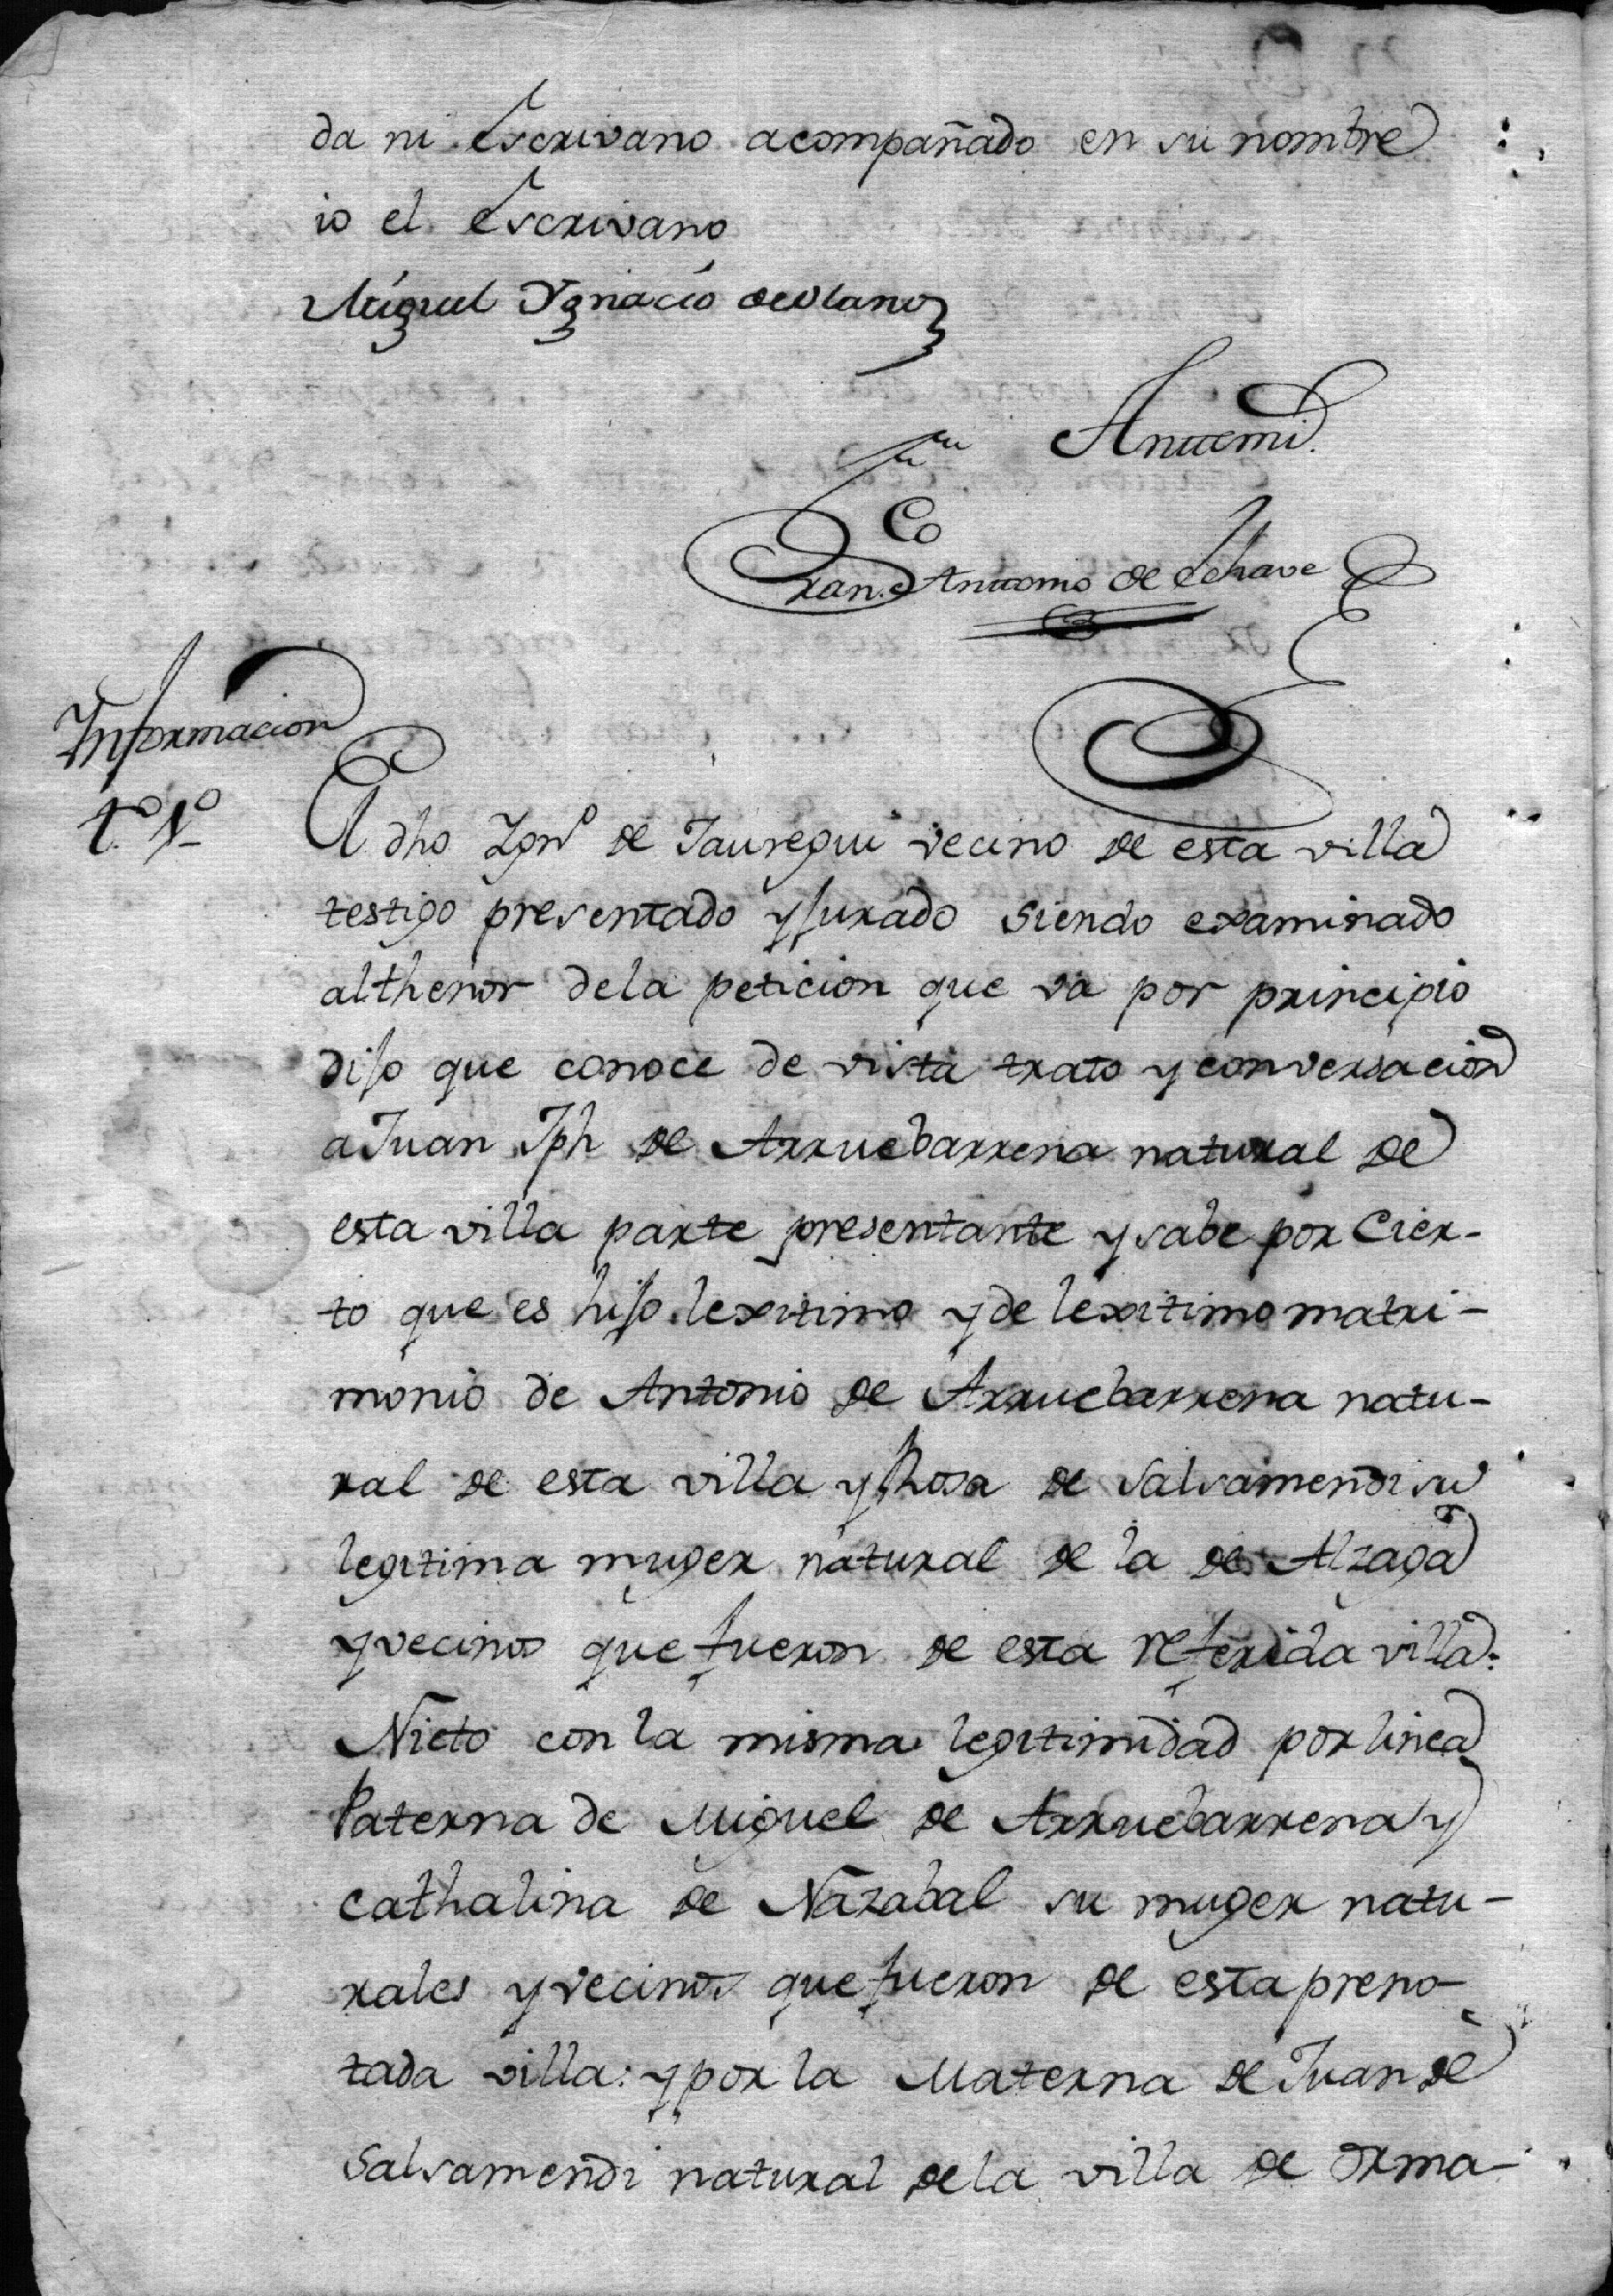 da ni Escrivano acompañado en su nombre
io el Escrivano
Miguel Ygnacio de Olano
Ante mi
Franco Antonio de Echave
Informacion
t.º 1º
El dho Ignº de Jauregui vecino de esta villa
testigo presentado y jurado siendo examinado
althenor dela peticion que va por principio
dijo que conoce de vista trato y conversacion
a Juan Jph de Arruebarrena natural de
esta villa parte presentante y sabe por Cier-
to que es hijo lexitimo y de lexitimo matri-
monio de Antonio de Arruebarrena natu-
ral de esta villa y Rosa de Salsamendi su
legitima muger natural de la de Alzaga
y vecinos que fueron de esta referida villa:
Nieto con la misma legitimidad por linea
Paterna de Miguel de Arruebarrena y
Cathalina de Nazabal su muger natu-
rales y vecinos que fueron de esta preno-
tada villa: y por la Materna de Juan de
Salsamendi natural de la villa de Orma-